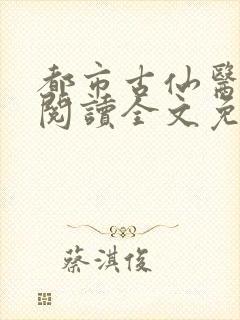 都市古仙醫
閱讀全文免
蔡淇俊